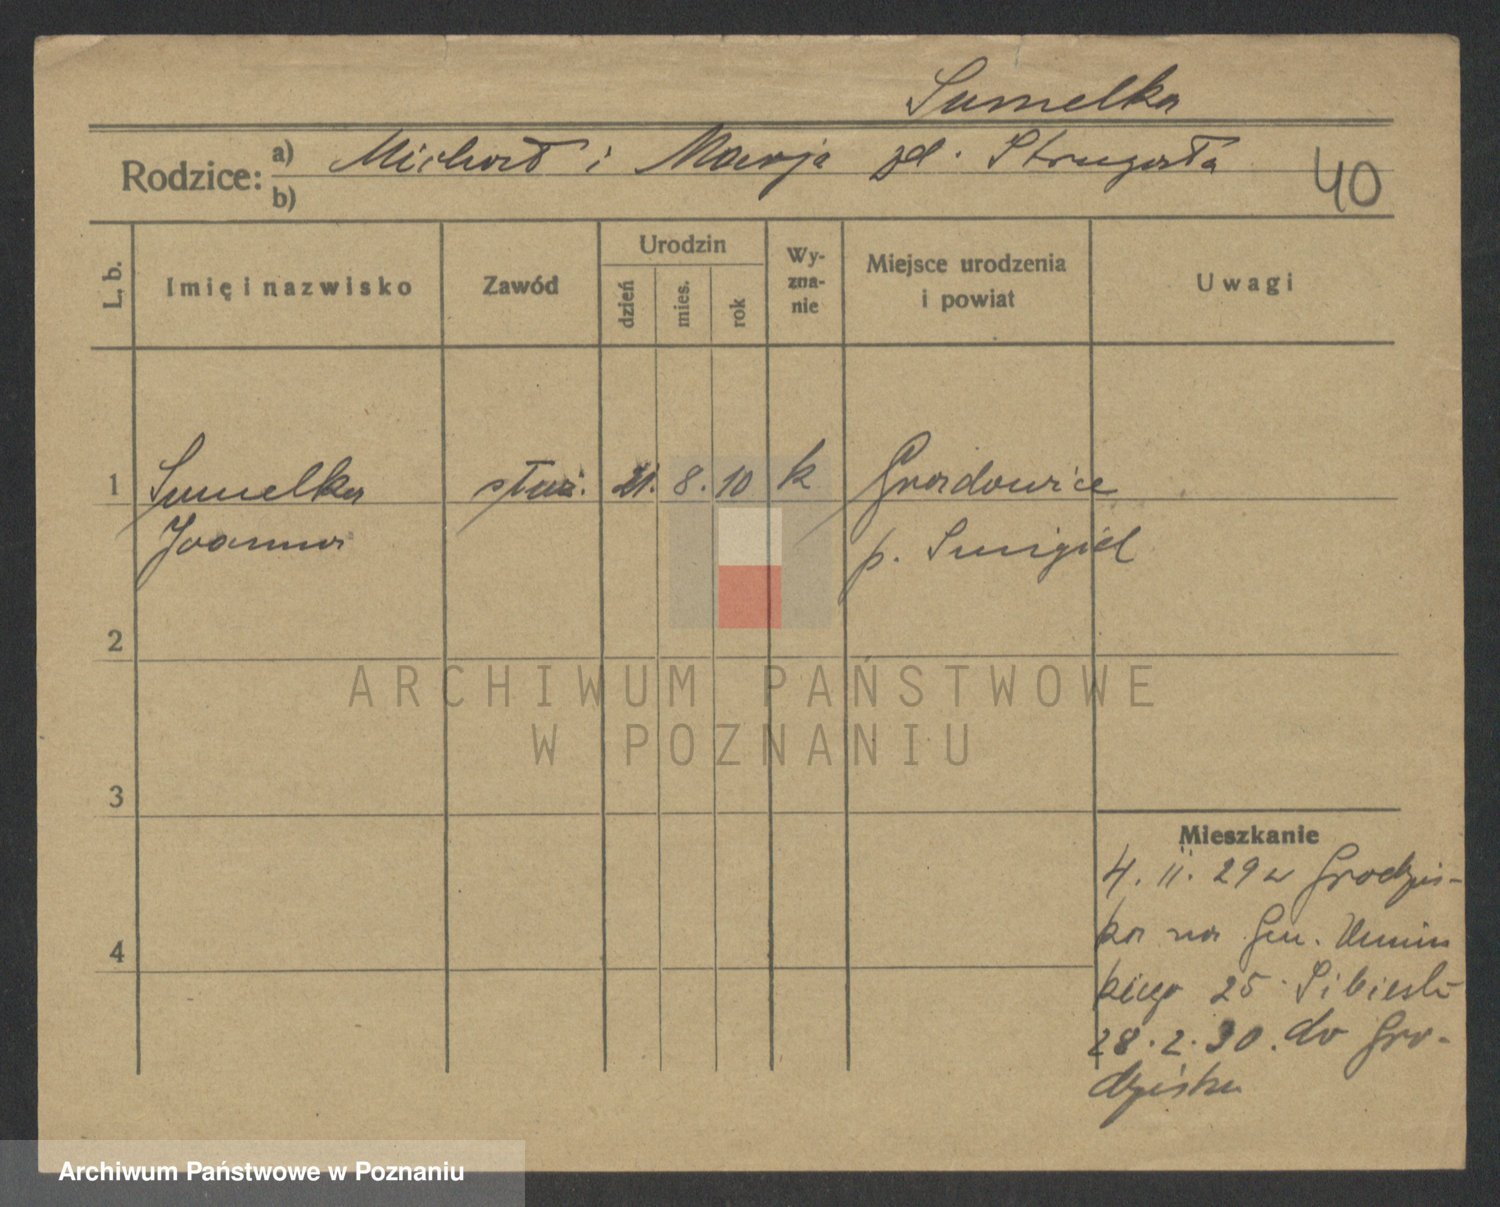 Sumelka
Rodzice: a) Michał i Marja zd. Strugała
b)
40
L. b.
Imię i nazwisko
Zawód
Urodzin
dzień
mies.
rok
Wy-
zna-
nie
Miejsce urodzenia
i powiat
Uwagi
1 Sumelka służ. 21. 8. 10 k Gradowice
Joanna p. Smigiel
2
3
4
Mieszkanie
4. II. 29 z Grodzis-
ka na Gen. Umiń
kiego 25
28. 2. 30. do Gro-
dziska
ARCHIWUM PAŃSTWOWE
W POZNANIU
Archiwum Państwowe w Poznaniu